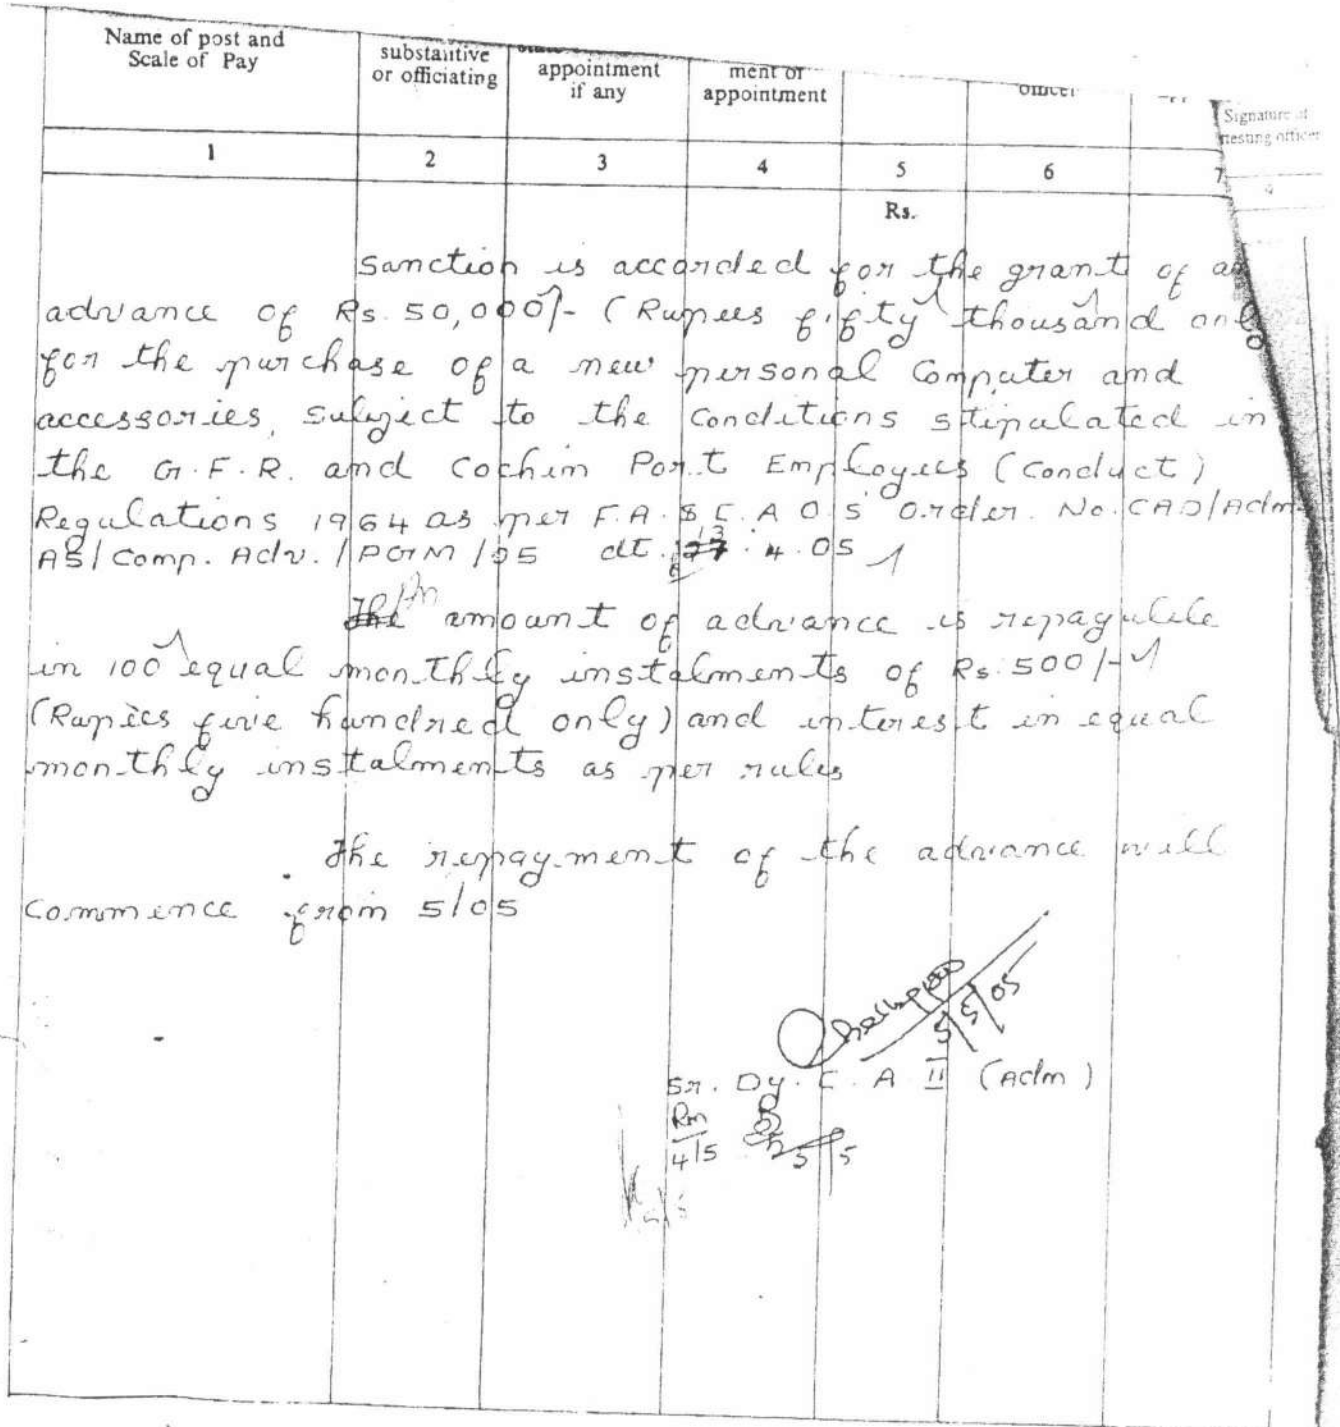 Name of post and
Scale of Pay
substantive
or officiating
appointment
if any
ment of
appointment
officer
Signature of
testing officer
1 2 3 4 5 6 7
Rs.
Sanction is accorded for the grant of an
advance of Rs. 50,000/- (Rupees fifty thousand only
for the purchase of a new personal Computer and
accessories, subject to the conditions stipulated in
the G.F.R. and Cochin Port Employees (Conduct)
Regulations 1964 as per F.A. & C.A.O.'s Order. No. CAO/Adm
AS/Comp. Adv./PGM/05 dt. 13.4.05
The amount of advance is repayable
in 100 equal monthly instalments of Rs. 500/-
(Rupees five hundred only) and interest in equal
monthly instalments as per rules
The repayment of the advance will
Commence from 5/05
5/5/05
Sr. Dy. C. A II (Adm)
4/5 5/5